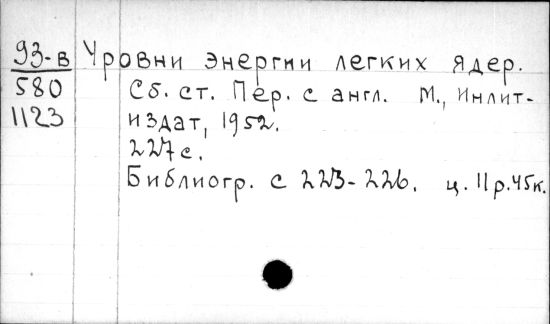 93-в Уровни энергии легких ядер.
580 Сб. ст. Пер. с англ. М., Инлит-
1123 издат, 1952.
227с.
Библиогр. с 223-226. ц. 11р.45к.